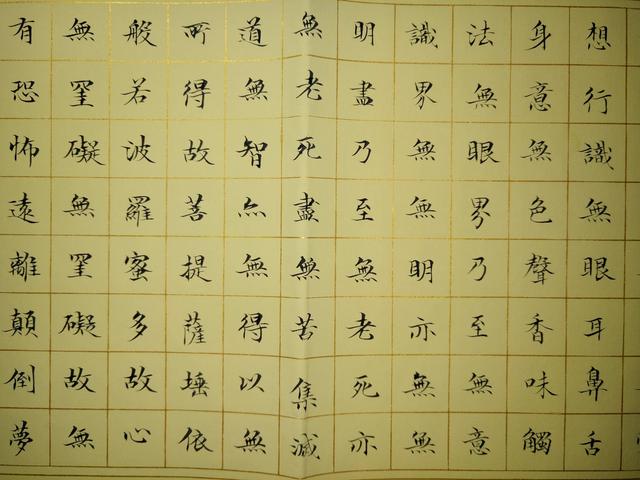 想行識無眼耳鼻舌
身意無色聲香味觸
法無眼界乃至無意
識界無無明亦無無
明盡乃至無老死亦
無老死盡無苦集滅
道無智亦無得以無
所得故菩提薩埵依
般若波羅蜜多故心
無罣礙無罣礙故無
有恐怖遠離顛倒夢